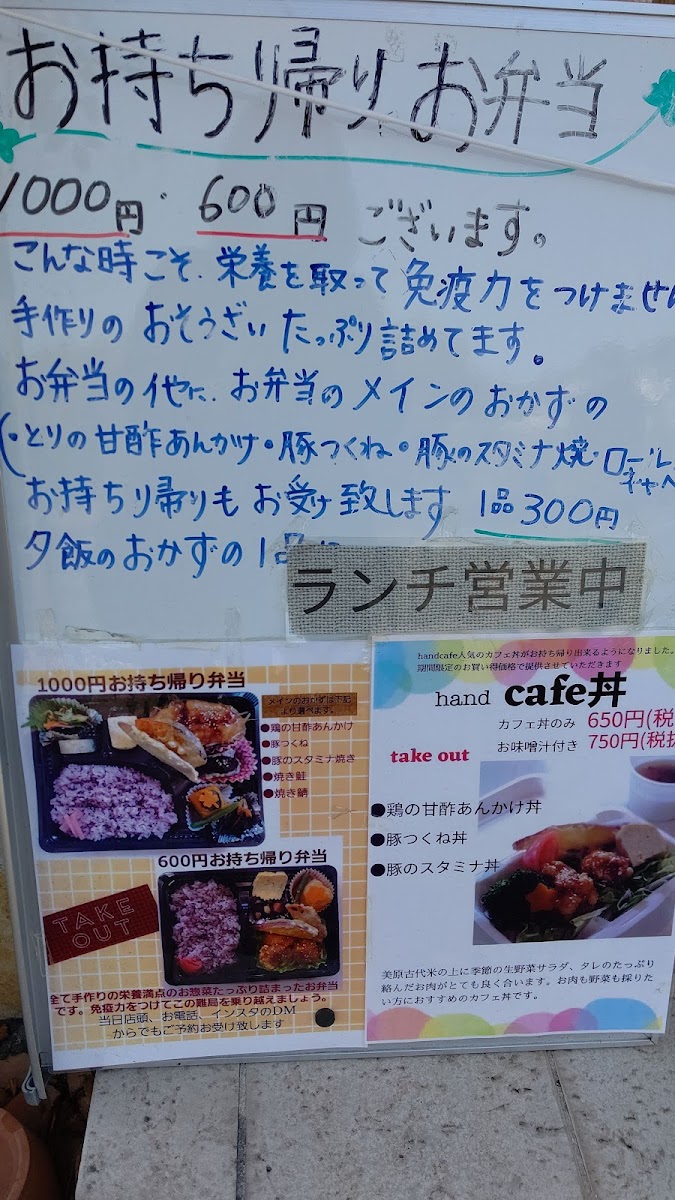 お持ち帰りお弁当
1000円・600円ございます。
こんな時こそ、栄養を取って免疫力をつけませ
手作りのおそうざいたっぷり詰めてます。
お弁当の他に、お弁当のメインのおかずの
(・とりの甘酢あんかけ・豚つくね・豚のスタミナ焼・ロール
キャベ
お持ち帰りもお受け致します 1品300円
夕飯のおかずの1品に
ランチ営業中
1000円お持ち帰り弁当
メインのおかずは下記
より選べます。
●鶏の甘酢あんかけ
●豚つくね
●豚のスタミナ焼き
●焼き鮭
●焼き鯖
600円お持ち帰り弁当
TAKE
OUT
全て手作りの栄養満点のお惣菜たっぷり詰まったお弁当
です。免疫力をつけてこの難局を乗り越えましょう。
当日店頭、お電話、インスタのDM
からでもご予約お受け致します
handcafe人気のカフェ丼がお持ち帰り出来るようになりました。
期間限定のお買い得価格で提供させていただきます
hand cafe丼
カフェ丼のみ 650円(税
お味噌汁付き 750円(税抜
take out
●鶏の甘酢あんかけ丼
●豚つくね丼
●豚のスタミナ丼
美原古代米の上に季節の生野菜サラダ、タレのたっぷり
絡んだお肉がとても良く合います。お肉も野菜も採りた
い方におすすめのカフェ丼です。